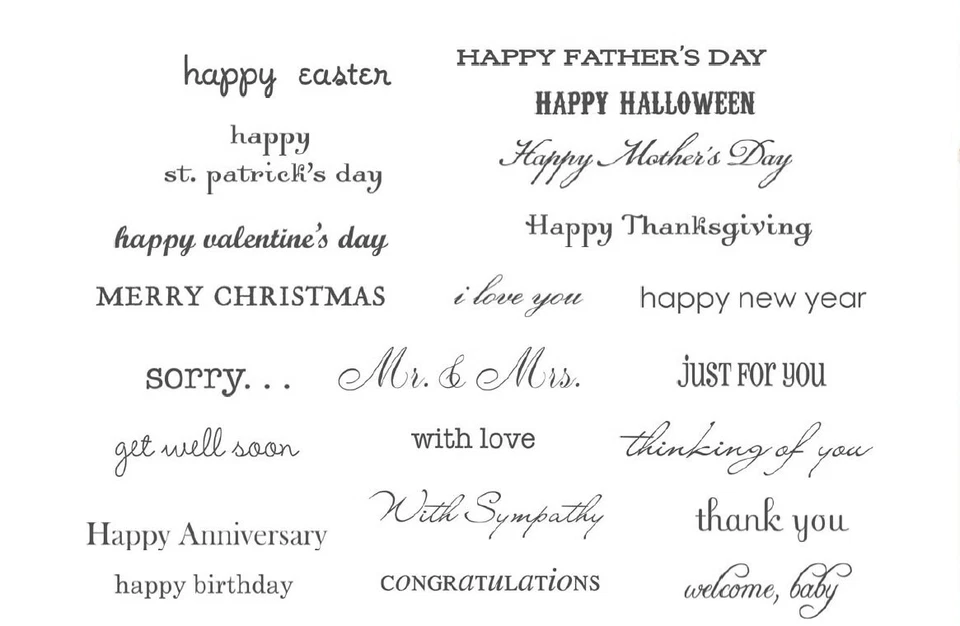 happy easter
HAPPY FATHER'S DAY
HAPPY HALLOWEEN
happy
st. patrick's day
Happy Mother's Day
happy valentine's day
Happy Thanksgiving
MERRY CHRISTMAS
i love you
happy new year
sorry. . .
Mr. & Mrs.
just for you
get well soon
with love
thinking of you
Happy Anniversary
With Sympathy
thank you
happy birthday
CONGRATULATIONS
welcome, baby